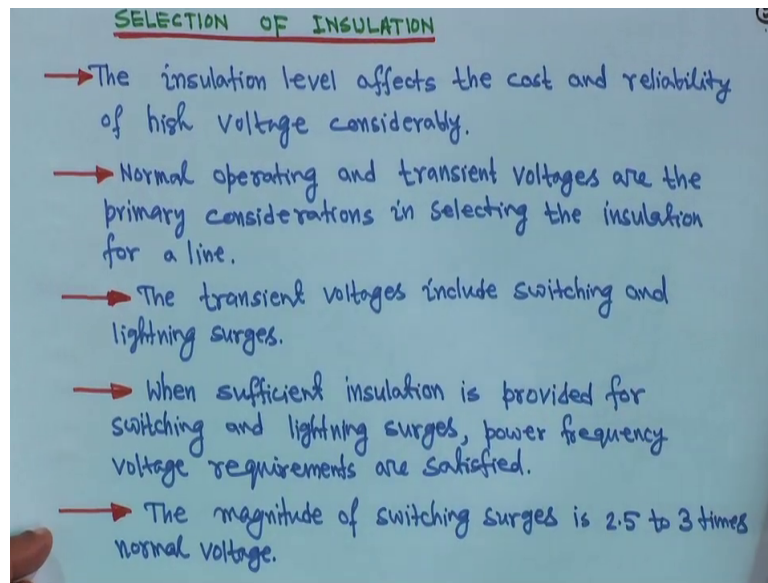 SELECTION OF INSULATION
→ The insulation level affects the cost and reliability
of high voltage considerably.
→ Normal operating and transient voltages are the
primary considerations in selecting the insulation
for a line.
→ The transient voltages include switching and
lightning surges.
→ When sufficient insulation is provided for
switching and lightning surges, power frequency
voltage requirements are satisfied.
→ The magnitude of switching surges is 2.5 to 3 times
normal voltage.